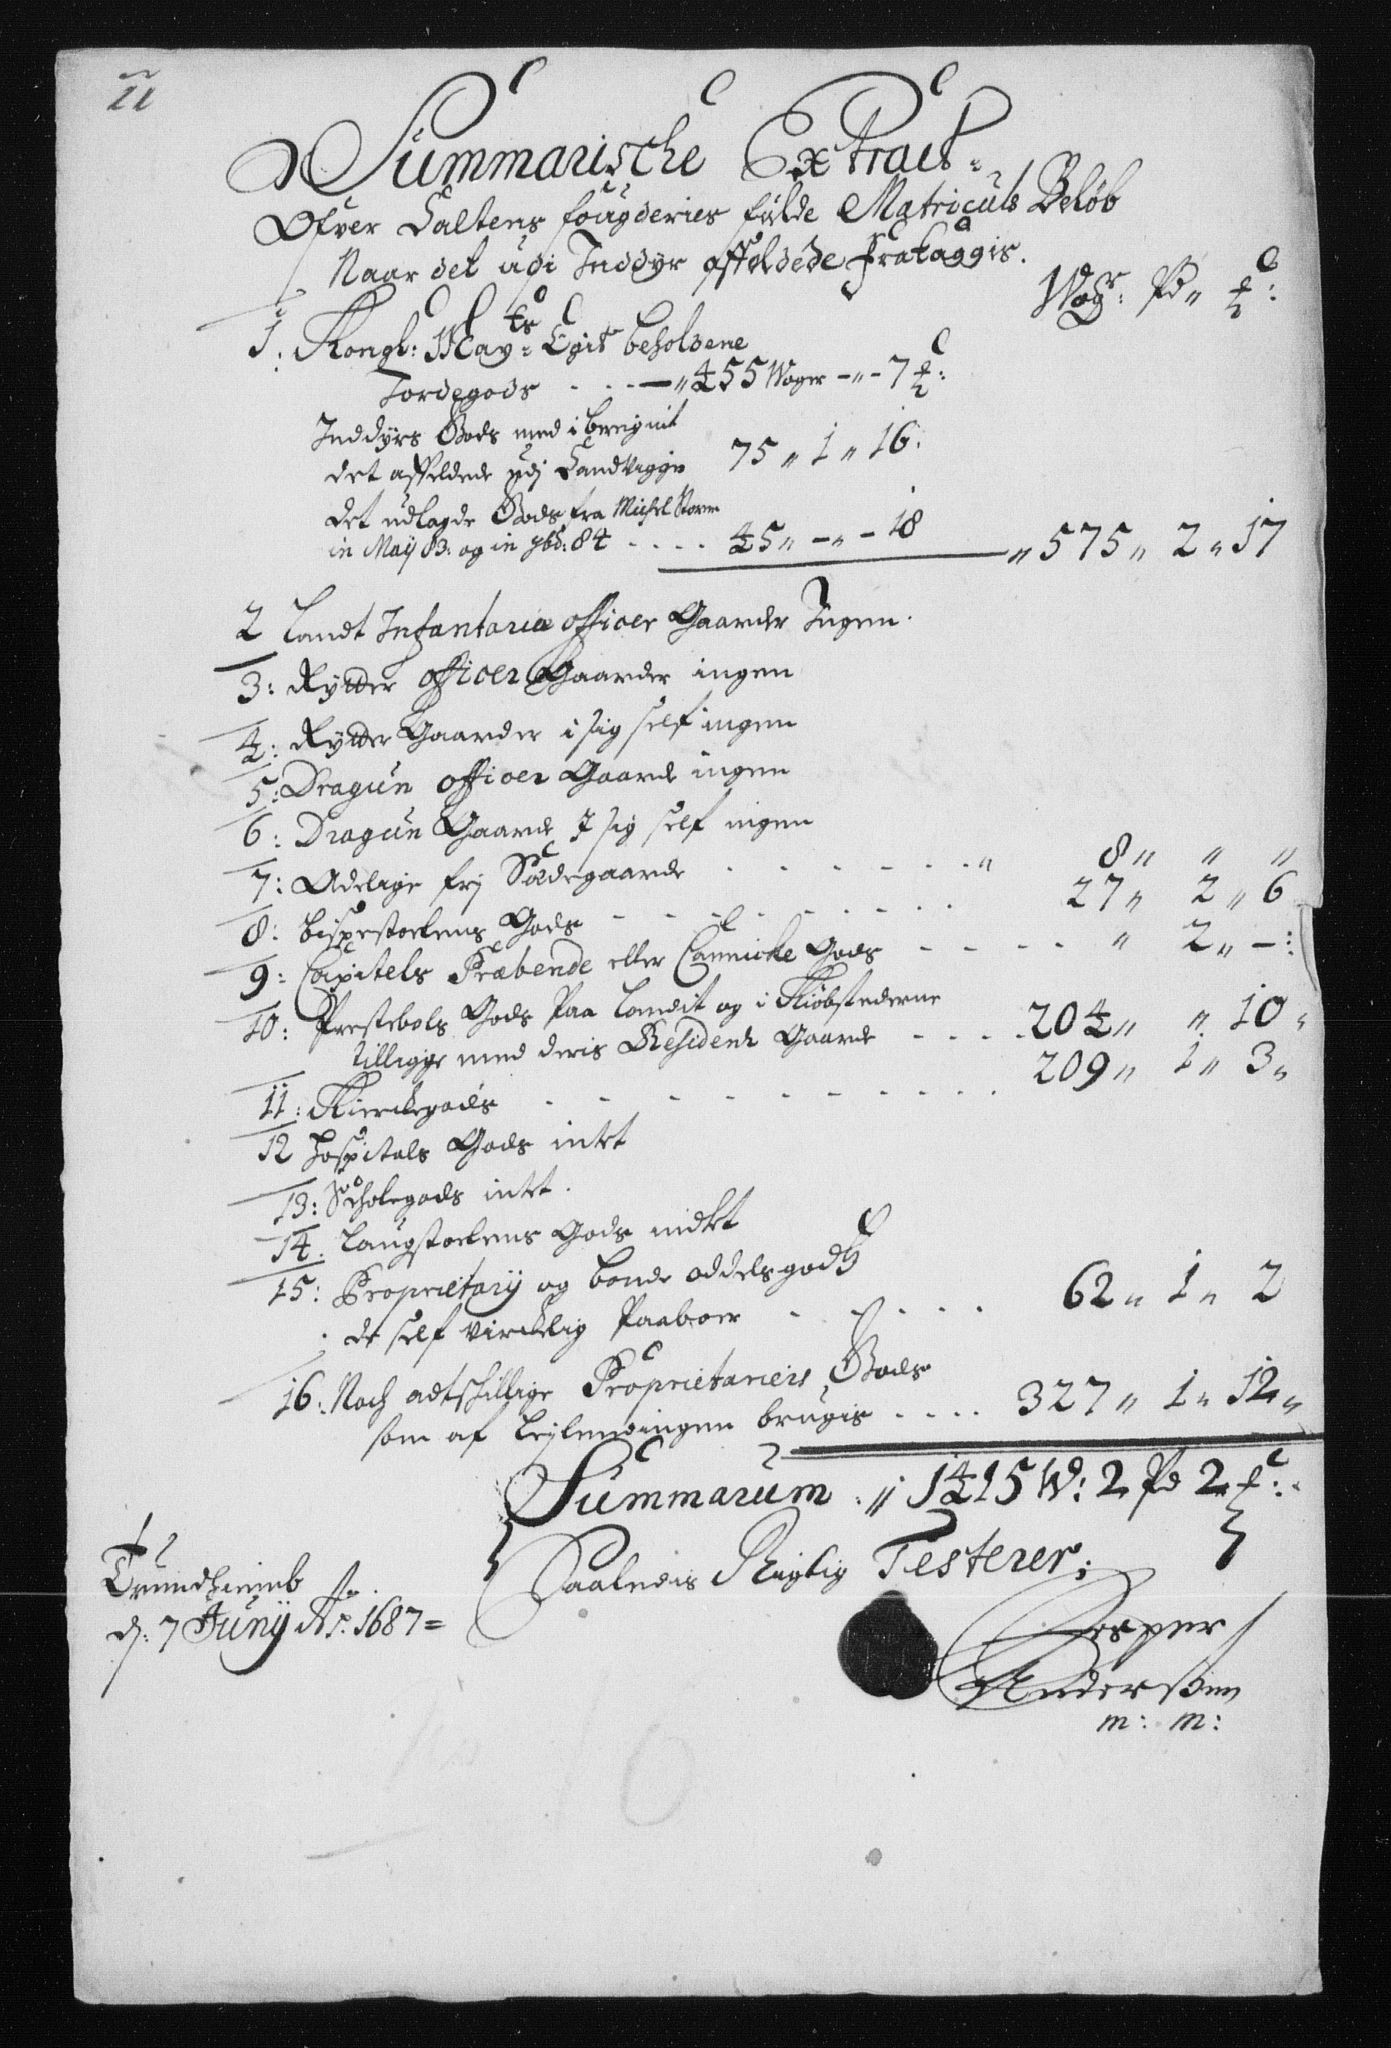 11
Summarische Extract
Ofver Saltens fougderies fulde Matriculs Beløb
Naar det udi Inddyr affeldede fratages.
Woger: Pd „ ℔:
1: Kongl: May:ts Egit beholdene
Jordegods - - - — „ 455 Woger - „ - 7 ℔:
Inddyrs Gods med i bereignit
det affeldede udj Landtvigge 75 „ 1 „ 16:
det udlagde Gods fra Michel Storm
in Maij 83: og in 9bd: 84 - - - - 45 „ - „ - 18 „ 575 „ 2 „ 17
2 Landt Infantarie officer Gaarder Ingen.
3: Rytter officer Gaarder ingen
4: Rytter Gaarder i sig self ingen
5: Dragun officer Gaarde ingen
6: Dragun Gaarde I sig self ingen
7: Adelige frj Sædegaarde - - - - - - „ 8 „ „ „
8: bispestoelens Gods - - - - - - - - 27 „ 2 „ 6
9: Capitels Præbende eller Cannicke Gods - - - - „ 2 „ - :
10: Prestebols Gods Paa Landit og i Kiøbstederne
tilligge med deris Residentz Gaarde - - - - 204 „ „ 10 „
11: Kierckegods - - - - - - - - - 209 „ 1 „ 3 „
12 Hospitals Gods intet
13: Scholegods intet.
14: Laugstoelens Gods indtet
15: Proprietarij og bonde oddelsgodß
de self virckelig Paaboer - - - - - 62 „ 1 „ 2
16: Noch adtskillige Proprietariers Gods
som af Leylendingen brugis - - - - 327 „ 1 „ 12 „
Summarum „ 1415 W: 2 Pd 2 ℔:
Saaledis Rigtig Testerer;
Trundhiemb
d: 7 Junij Ao: 1687 =
Jesper
Anderßen
m: m: